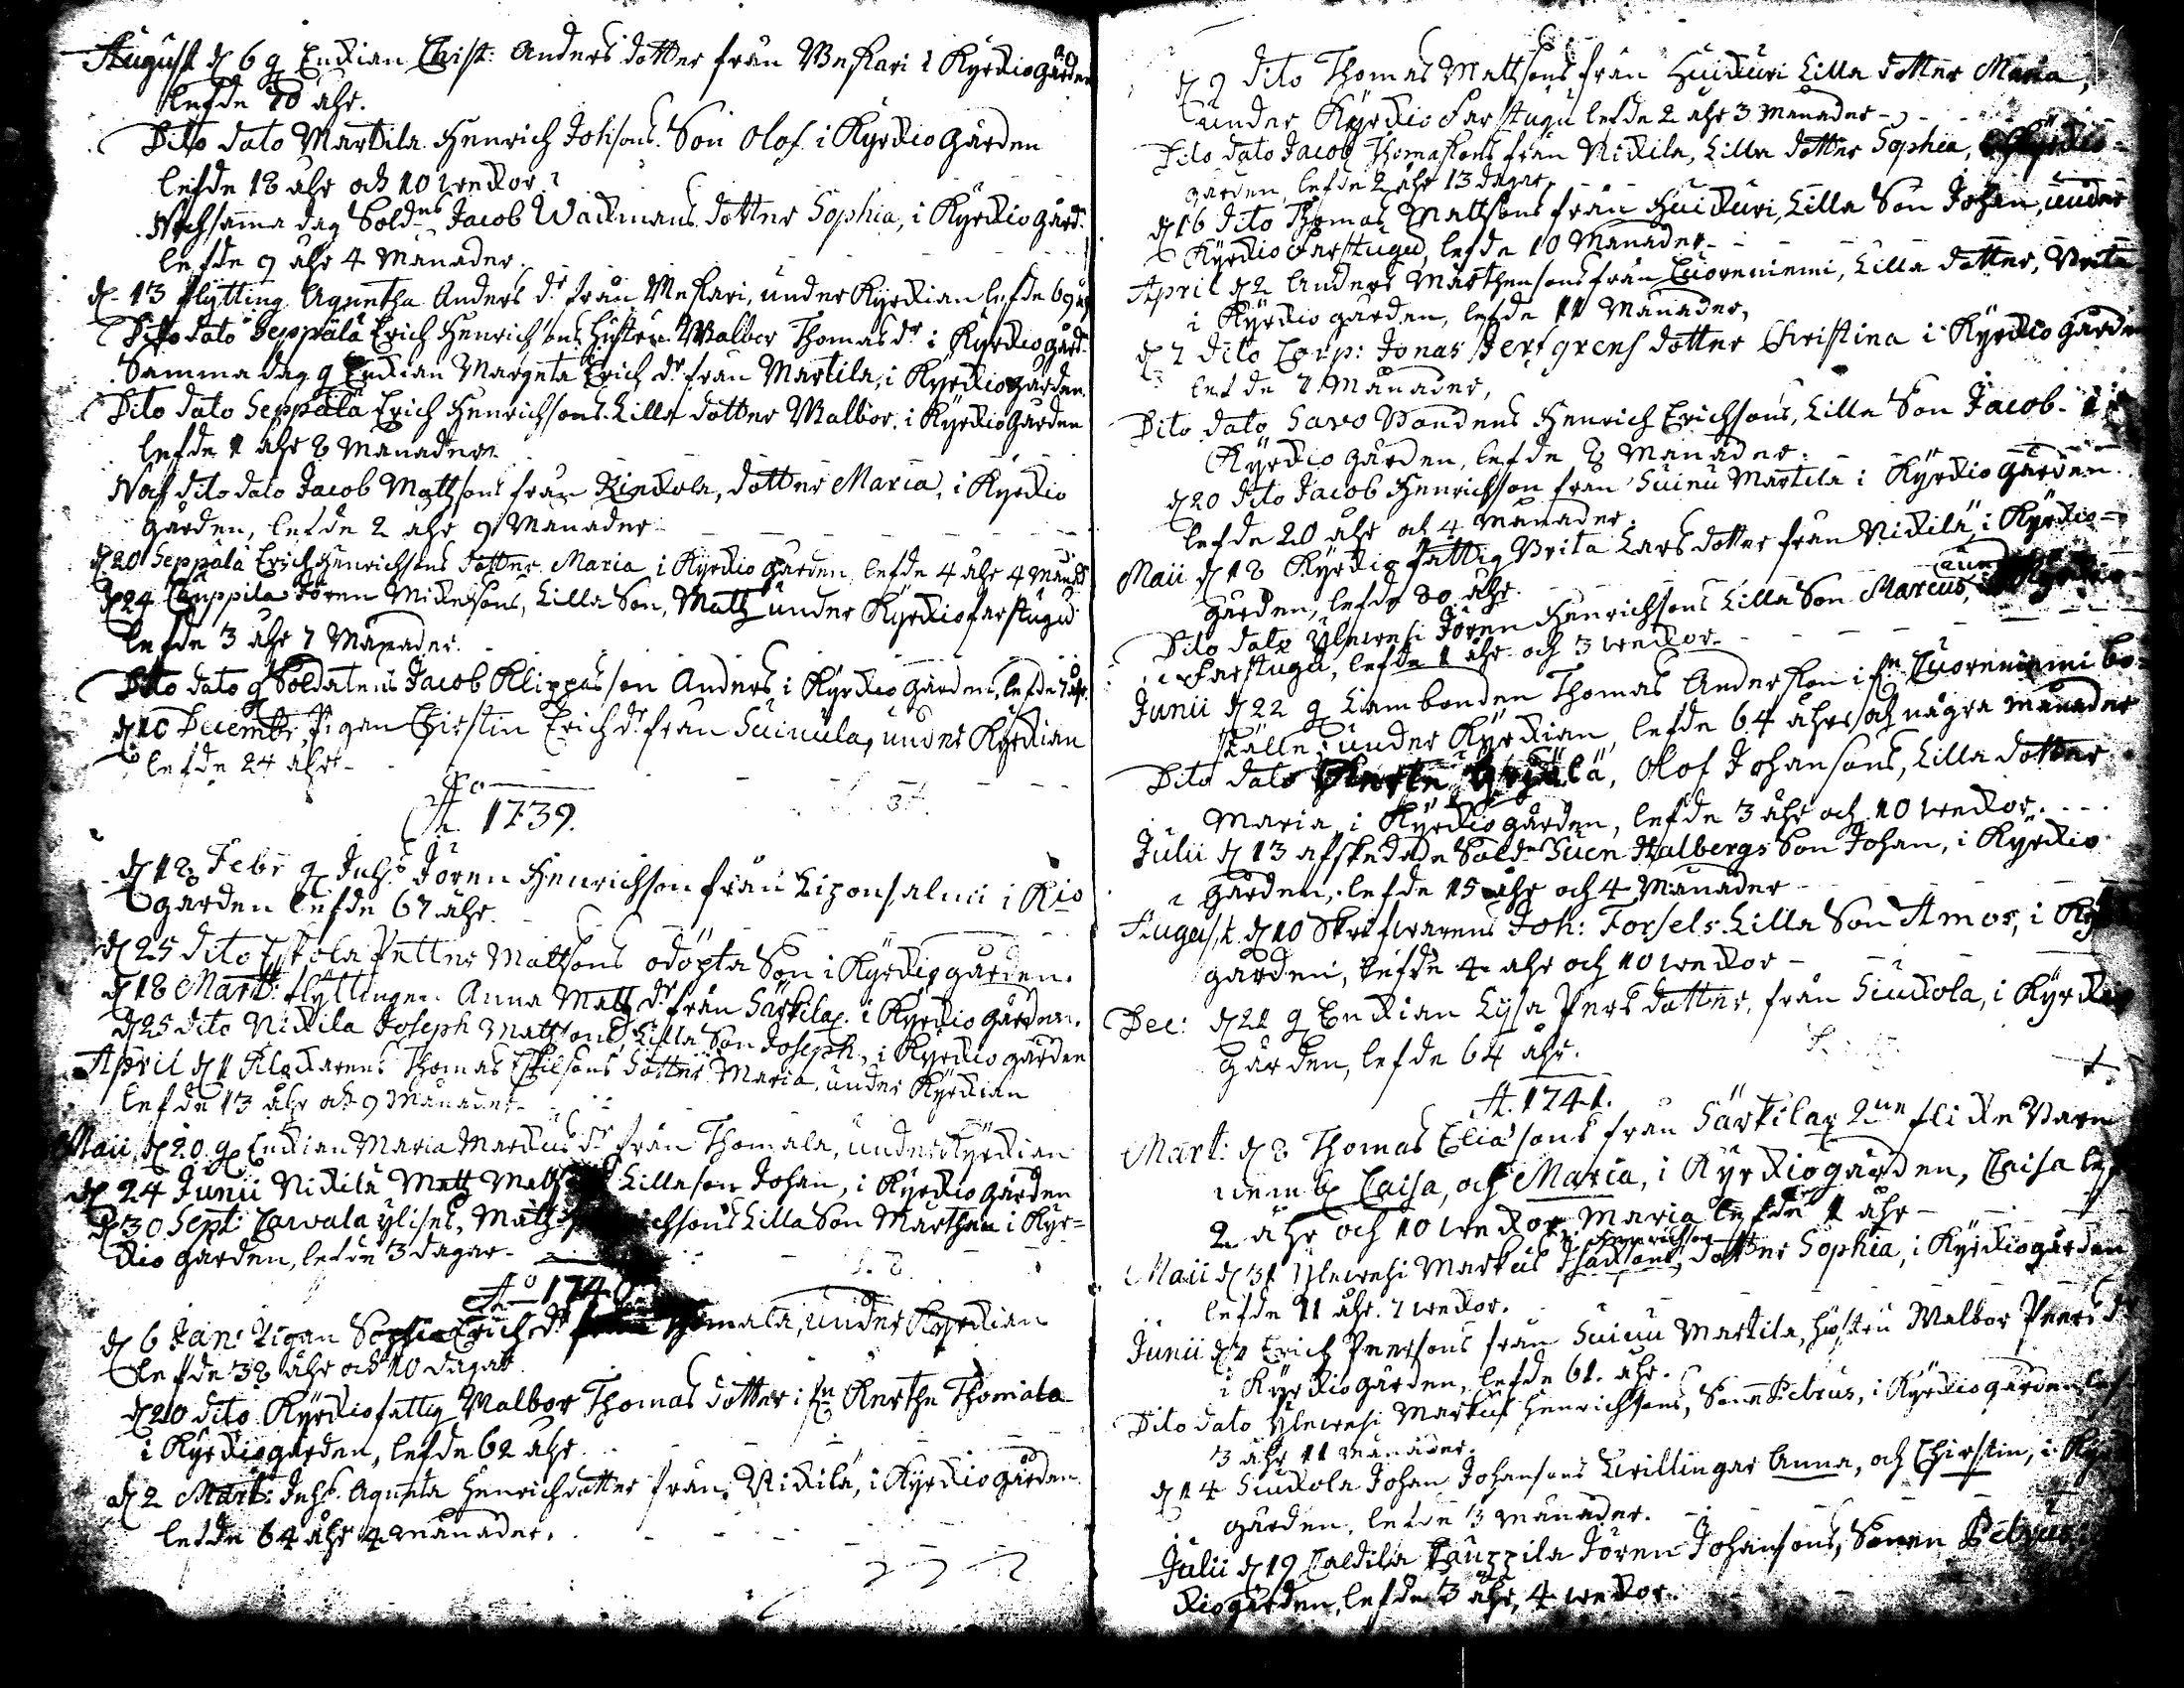 August d 6 g Enckian Christ: Anders dotter från Weskari i Kyrkiogården
lefde 70 åhr.
Dito dato Marttila Henrich Johsons Son Olof i Kyrkio gården
lefde 18 åhr och 10 weckor
Noch samma dag Sold:ns Jacob Wackmans dotter Sophia, i Kyrkio gård.
lefde 9 åhr 4 Månader.
d. 13 flytting Agnetha Anders dr från Meskari, under Kyrkian lefde 69 åhr
Dito dato Seppälä Erich Henrichsons hustru Walbor Thomas dr i Kyrkiogård.
Samma dag g Enckian Margeta Erich dr från Martila, i Kyrkiogården.
Dito dato Seppälä Erich Henrichsons Lilla dotter Walbor. i Kyrkiogården
lefde 1 åhr 8 Månader.
Noch dito dato Jacob Mattsons från Rinckola, dotter Maria, i Kyrkio
gården, lefde 2 åhr 9 Månader
d. 20 Seppälä Erich Henrichsons dotter Maria i Kyrkio gården, lefde 4 åhr 4 Månad
d 24 Cauppila Jören Mickelsons, Lilla Son, Matz under Kyrkiofarstugu
lefde 3 åhr 7 Månader.
Dito dato g Soldatens Jacob Klippas son Anders i Kyrkio gården, lefde 7 åhr.
d. 10 Decembr, Pigan Chirstin Erich dr från Suinula, under Kyrkian
lefde 24 åhr
Ao 1739.
d. 18 Febr g Inhs Jören Henrichson från Liponsalmi i Kio
gården lefde 67 åhr.
d 25 dito Eskola Petter Mattsons odöpta Son i Kyrkiogården.
d 18 Mart: flyttingen Anna Matz dr från Särkilax i Kyrkio gården.
d 25 dito Nickila Joseph Mattsons Lilla Son Joseph, i Kyrkio gården
April d 1 Klockarens Thomas Eskilsons dotter Maria, under Kyrkian
lefde 13 åhr och 9 Månader
Maii d 20 g Enckian Maria Marckus dr från Thomala, under Kyrkian
d 24 Junii Nickilä Matz Lilla son Johan, i Kyrkio gården
d 30 Sept: Carvala ylises, Matz Lilla Son Mårthen i Kyr=
kio gården, lefde 3 dagar
Ao 1740
d 6 Jan: Pigan Sophia Erich dr från Thomala, under Kyrkian
lefde 38 åhr och 10 dagar
d 20 dito Kyrkiofattig Walbor Thomas dotter i fr Kerthe Thomala
i Kyrkiogården, lefde 62 åhr
d 2 Mart: Inhs. Agneta Henrichdotter från Nickilä, i Kyrkiogården
lefde 64 åhr 4 månader.
d 9 dito Thomas Mattsons från Huickuri Lilla dotter Maria,
under Kyrkio farstugu lefde 2 åhr 3 Månader
Dito dato Jacob Thomassons från Nickila, Lilla dotter Sophia,
gården, lefde 2 åhr 13 dagar.
d 16 dito Thomas Mattsons från Huickuri, Lilla Son Johan, under
Kyrkiofarstugu, lefde 10 Månader
April d 2 Anders Mårthensons från Cuoreniemi, Lilla dotter, Brita
i Kyrkio gården, lefde 11 Månader,
d 7 dito Corp: Jonas Berggrens dotter Christina i Kyrkio gården
lefde 7 Månader,
Dito dato Savo Bondens Henrich Erichsons, Lilla Son Jacob. i
Kyrkio gården, lefde 8 Månader.
d 20 dito Jacob Henrichson från Suinu Martila i Kyrkiogården
lefde 20 åhr och 4 månader.
Maii d 18 Kyrkio fattig Brita Lars dotter från Nickilä, i Kyrkio-
gården, lefde 80 åhr.
Dito dato Ylewesi Jören Henrichsons Lilla Son Marcus, und
farstugu, lefde 1 åhr och 3 weckor.
Junii d 22 g Lambonden Thomas Andersson i fr Cuoreniemi bo=
ställe: under Kyrkian, lefde 64 åhr och några månader
Dito dato Olof Johansons, Lilla dotter
Maria, i Kyrkio gården, lefde 3 åhr och 10 weckor.
Julii d 13 afskedade Sold:ns Suen Stalbergs Son Johan, i Kyrkio
gården, lefde 15 åhr och 4 Månader
August. d 10 Skrifwarens Joh: Forsels Lilla Son Amos, i Ky
gården, lefde 4 åhr och 10 weckor
Dec: d 21 g Enckian Lysa Pers dotter, från Siuckola, i Kyrkio
gården, lefde 64 åhr.
A. 1741.
Mart: d 8 Thomas Eliæsons från Särkilax 2ne flicke Barn
nembl Caisa, och Maria, i Kyrkiogården, Caisa lef
2 åhr och 10 weckor Maria lefde 1 åhr
Maii d 31 Ylewesi Markus Henrichson dotter Sophia, i Kyrkiogården
lefde 11 åhr. 7 weckor.
Junii d 1 Erich Peersons från Suinu Martila, hustru Walbor Peers dr
i Kyrkiogården, lefde 61. åhr.
Dito dato Ylewesi Markus Henrichsons, Son Petrus, i Kyrkiogården lef
3 åhr 11 månader.
d 14 Siuckola Johan Johansons twillingar Anna, och Chirstin, i Ky
gården, lefde 3 månader.
Julii d 19 Caldila Cauppila Jören Johansons, Sonen Petrus
kiogården, lefde 3 åhr, 4 weckor.